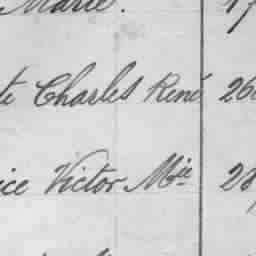 Marie. 17
te Charles René 26
ice Victor Mie 28